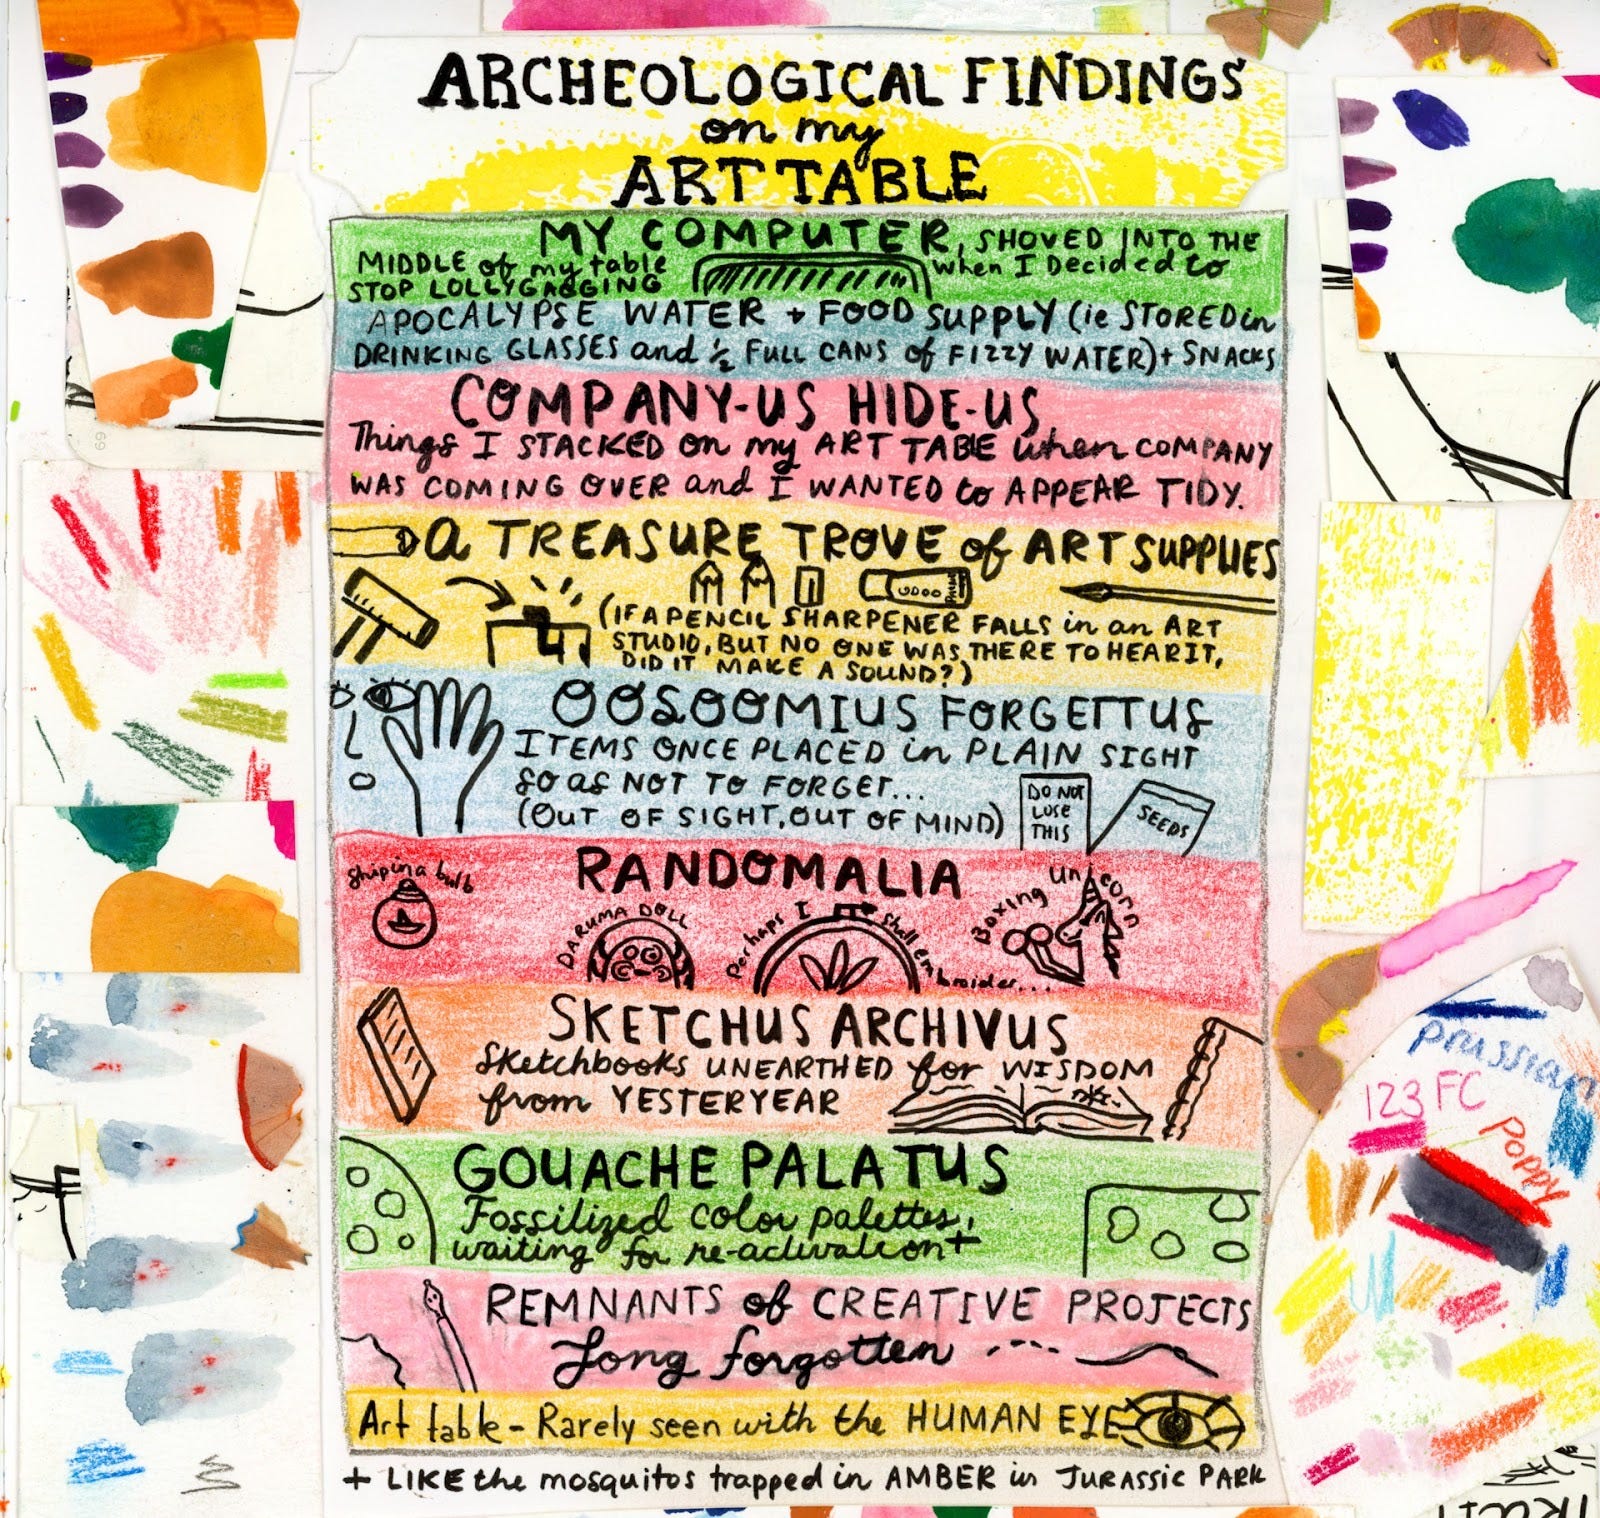 ARCHEOLOGICAL FINDINGS
on my
ART TABLE
MY COMPUTER, SHOVED INTO THE
MIDDLE of my table when I Decided to
STOP LOLLYGAGGING
APOCALYPSE WATER + FOOD SUPPLY (ie STORED in
DRINKING GLASSES and ½ FULL CANS of FIZZY WATER) + SNACKS
COMPANY-US HIDE-US
Things I STACKED on my ART TABLE when COMPANY
WAS COMING OVER and I WANTED to APPEAR TIDY.
A TREASURE TROVE of ART SUPPLIES
(IF A PENCIL SHARPENER FALLS in an ART
STUDIO, BUT NO ONE WAS THERE TO HEAR IT,
DID IT MAKE A SOUND?)
OOSOOMIUS FORGETTUS
ITEMS ONCE PLACED in PLAIN SIGHT
SO as NOT TO FORGET...
(OUT OF SIGHT, OUT OF MIND)
DO NOT
LOSE
THIS
SEEDS
RANDOMALIA
Ship in a bulb
DARUMA DOLL
Perhaps I shall embroider...
Boxing unicorn
SKETCHUS ARCHIVUS
Sketchbooks UNEARTHED for WISDOM
from YESTERYEAR
GOUACHE PALATUS
Fossilized color palettes,
waiting for re-activation +
REMNANTS of CREATIVE PROJECTS
Long forgotten
Art table - Rarely seen with the HUMAN EYE
+ LIKE the mosquitos trapped in AMBER in JURASSIC PARK
69
prussian
123 FC
POPPY